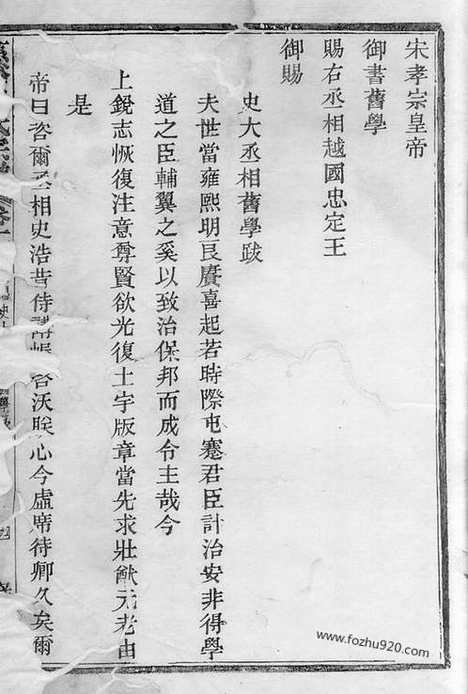 宋孝宗皇帝
御書舊學
賜右丞相越國忠定王
御賜
史大丞相舊學跋
夫世當雍熙明良賡喜起若時際屯蹇君臣計治安非得學
道之臣輔翼之奚以致治保邦而成令主哉今
上銳志恢復注意尊賢欲光復土宇版章當先求壯猷元老由
是
帝曰咨爾丞相史浩昔侍講帳啓沃朕心今虛席待卿久矣爾
www.fozhu920.com